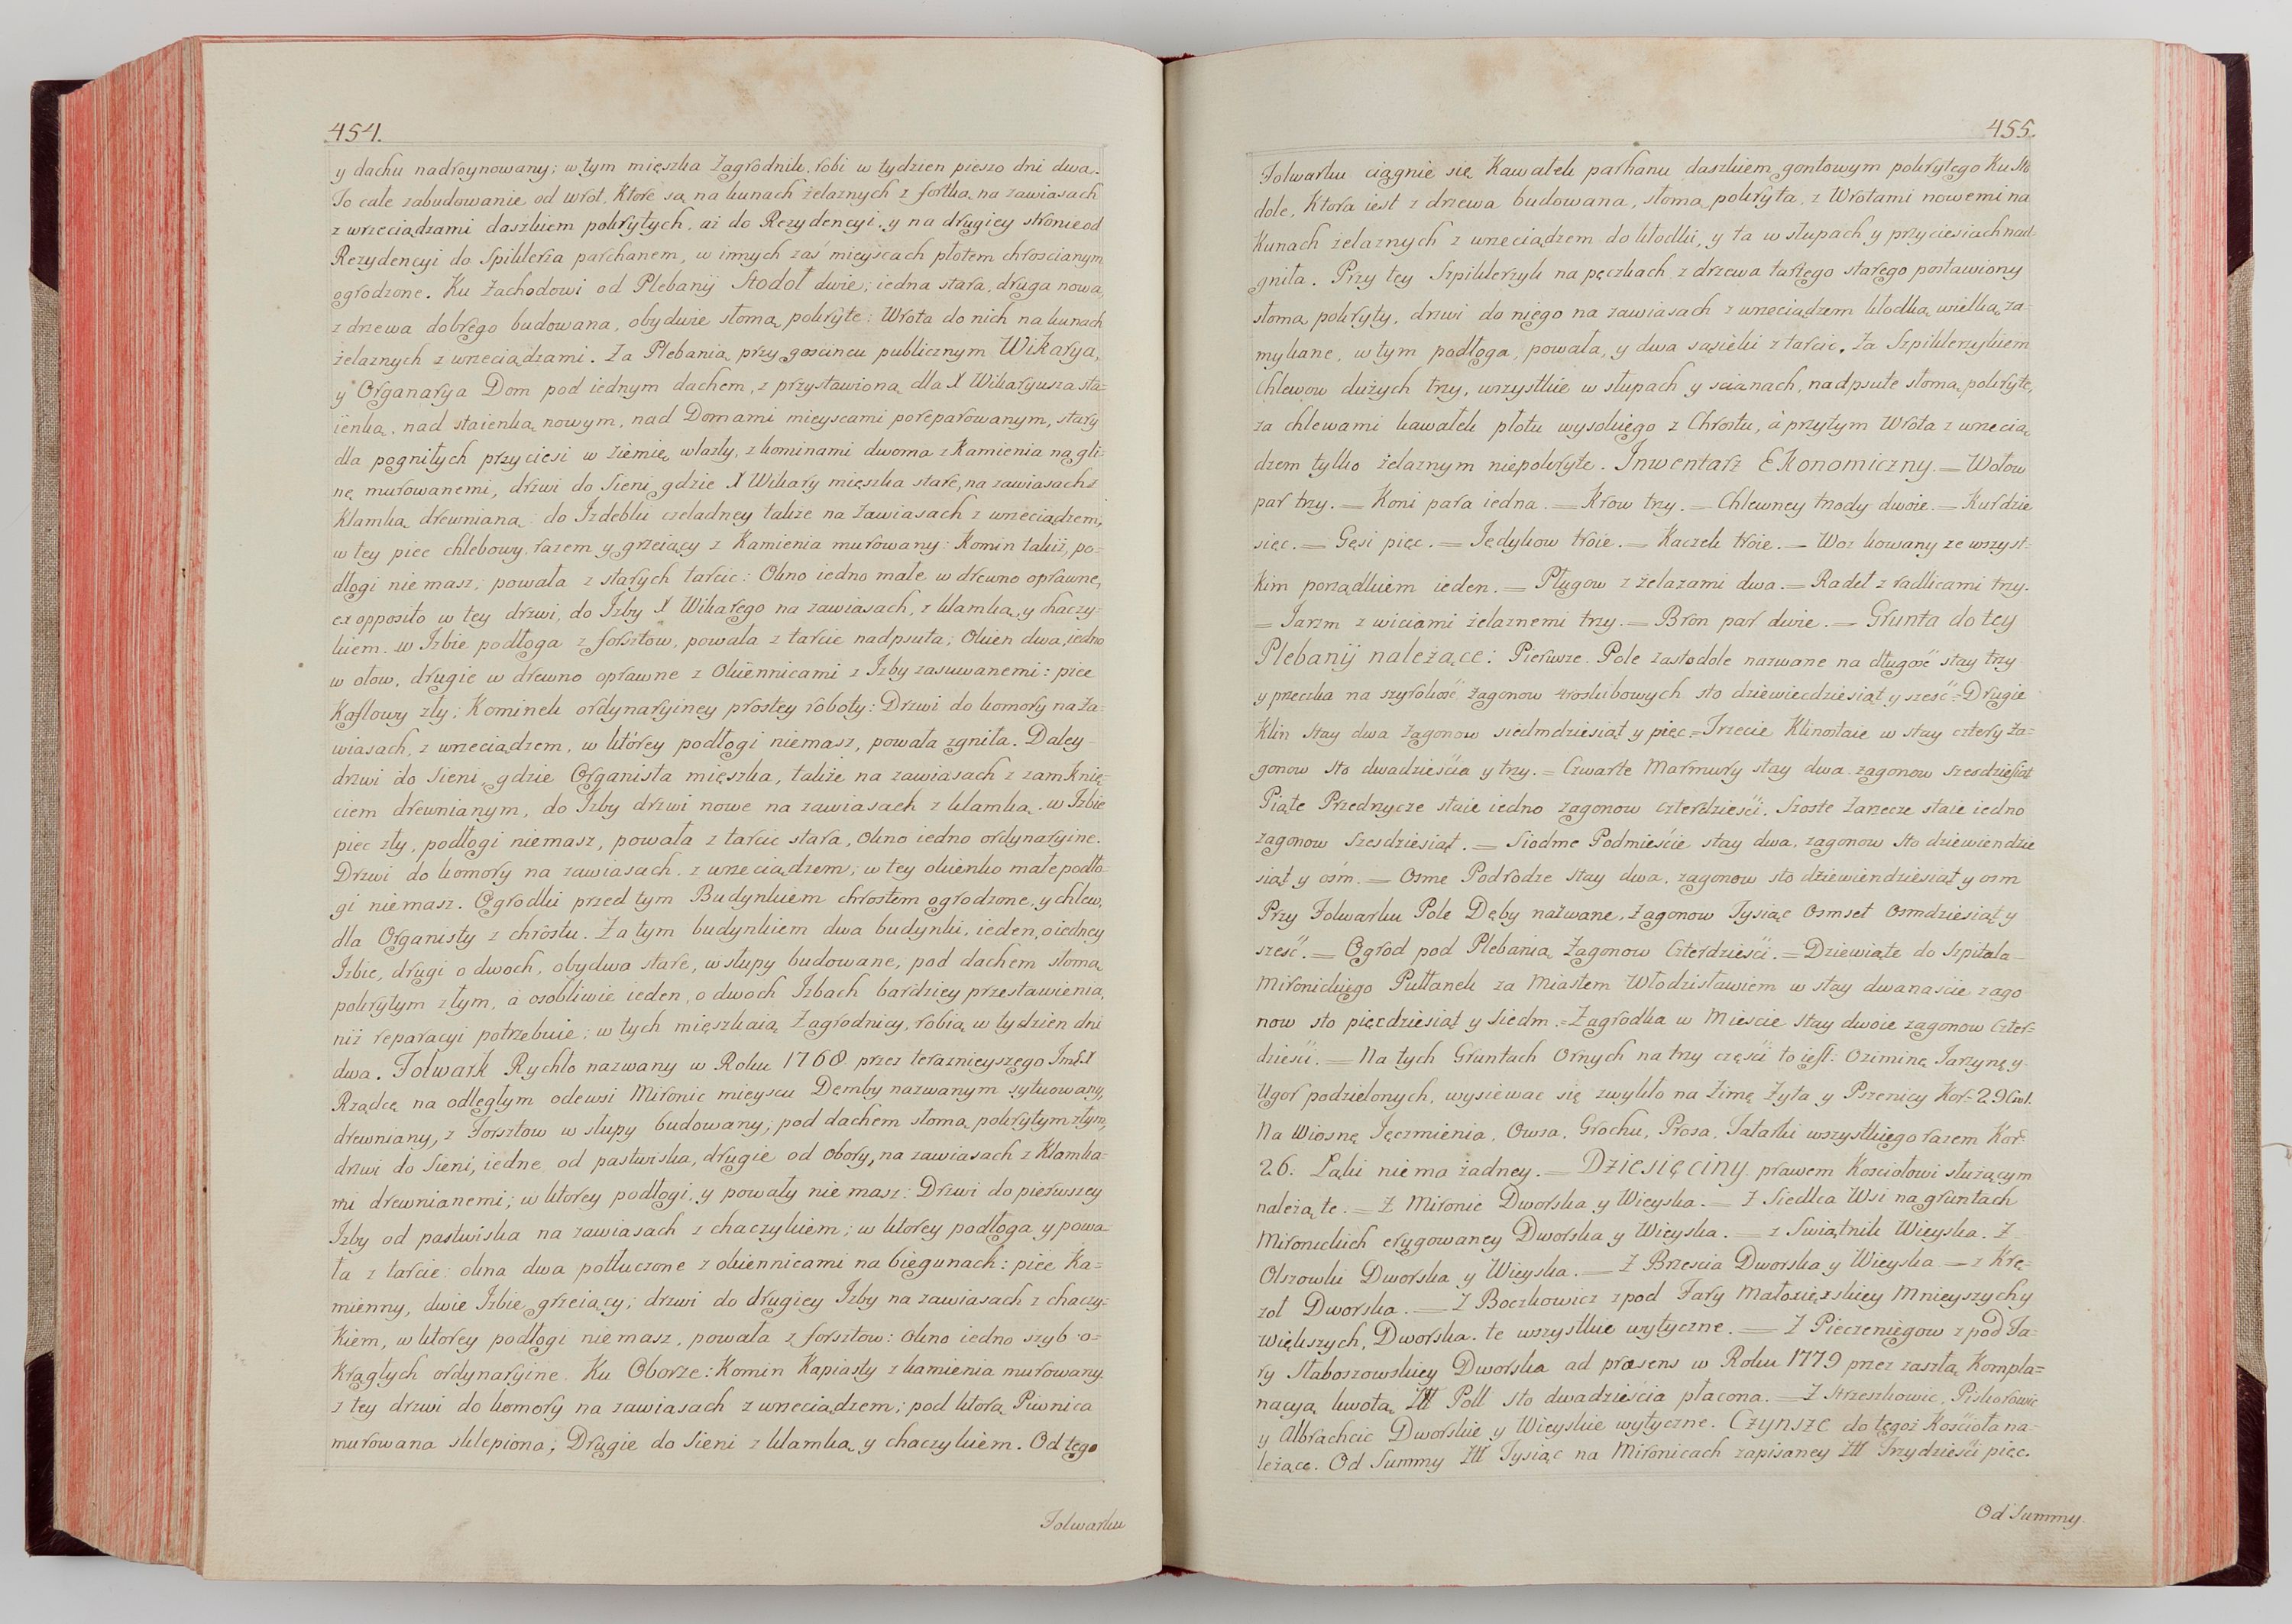 454.
y dachu nadroynowany; w tym mięszka Zagrodnik, robi w tydzien pieszo dni dwa.
To całe zabudowanie od wrot, Które są na kunach żelaznych z fortką na zawiasach
z wrzeciądzami daszkiem pokrytych, aż do Rezydencyi, y na drugiey stronie od
Rezydencyi do Spiklerza parchanem, w innych zaś mieyscach płotem chroscianym
ogrodzone. Ku Zachodowi od Plebanij Stodoł dwie; iedna stara, druga nowa,
z drzewa dobrego budowana, obydwie słomą pokryte: Wrota do nich na kunach
żelaznych z wrzeciądzami. Za Plebanią przy goscincu publicznym Wikarya,
y Organarya Dom pod iednym dachem, z przystawioną dla X Wikaryusza sta=
ienką, nad staienką nowym, nad Domami mieyscami poreparowanym, stary
dla pognitych przyciesi w ziemię wlazły, z kominami dwoma z Kamienia na gli=
nę murowanemi, drzwi do Sieni gdzie X Wikary mięszka stare, na zawiasach z
Klamką drewnianą: do Izdebki czeladney także na Zawiasach z wrzeciądzem,
w tey piec chlebowy, razem y grzeiący z Kamienia murowany: Komin takiż, po=
dłogi nie masz, powała z starych tarcic: Okno iedno małe w drewno oprawne,
ex opposito w tey drzwi, do Izby X Wikarego na zawiasach, z klamką, y haczy=
kiem. w Izbie podłoga z forsztow, powała z tarcic nadpsuta; Okien dwa, iedno
w ołow, drugie w drewno oprawne z Okiennicami z Izby zasuwanemi: piec
Kaflowy zły; Kominek ordynaryiney prostey roboty: Drzwi do komory na Za=
wiasach, z wrzeciądzem, w ktòrey podłogi niemasz, powała zgniła. Daley
drzwi do Sieni, gdzie Organista mięszka, także na zawiasach z zamknię=
ciem drewnianym, do Izby drzwi nowe na zawiasach z klamką. w Izbie
piec zły, podłogi niemasz, powała z tarcic stara, Okno iedno ordynaryine.
Drzwi do komory na zawiasach, z wrzeciądzem; w tey okienko małe podło=
gi niemasz. Ogrodki przed tym Budynkiem chrostem ogrodzone, y chlew,
dla Organisty z chrôstu. Za tym budynkiem dwa budynki, ieden, o iedney
Izbie, drugi o dwoch, obydwa stare, w słupy budowane, pod dachem słomą
pokrytym złym, à osobliwie ieden, o dwoch Izbach bardziey przestawienia,
niż reparacyi potrzebuie; w tych mięszkaią Zagrodnicy, robią w tydzien dni
dwa. Folwark Rychło nazwany w Roku 1768 przez teraznieyszego ImX
Rządcę na odległym od wsi Mironic mieyscu Demby nazwanym sytuowany,
drewniany, z Forsztow w słupy budowany; pod dachem słomą pokrytym złym,
drzwi do Sieni, iedne od pastwiska, drugie od Obory, na zawiasach z Klamka=
mi drewnianemi; w ktorey podłogi, y powały nie masz: Drzwi do pierwszey
Izby od pastwiska na zawiasach z chaczykiem; w ktorey podłoga y powa=
ła z tarcic: okna dwa potłuczone z okiennicami na biegunach: piec Ka=
mienny, dwie Izbie grzeiący; drzwi do drugiey Izby na zawiasach z chaczy=
kiem, w ktorey podłogi nie masz, powała z forsztow: Okno iedno szyb o=
krągłych ordynaryine. Ku Oborze: Komin Kapiasty z kamienia murowany.
z tey drzwi do komory na zawiasach z wrzeciądzem; pod ktorą Piwnica
murowana sklepiona; Drugie do Sieni z klamką y chaczykiem. Od tego
Folwarku
455.
Folwarku ciągnie się Kawałek parkanu daszkiem gontowym pokrytego Ku Sto
dole, Ktora iest z drzewa budowana, słomą pokryta, z Wrotami nowemi na
Kunach żelaznych z wrzeciądzem do kłodki, y ta w słupach y przyciesiach nad=
gniła. Przy tey Szpiklerzyk na pęczkach z drzewa tartego starego postawiony
słomą pokryty, drzwi do niego na zawiasach z wrzeciądzem kłodką wielką za=
mykane, w tym podłoga, powała, y dwa sąsieki z tarcic. Za Szpiklerzykiem
Chlewow dużych trzy, wszystkie w słupach y scianach, nadpsute słomą pokryte,
za chlewami kawałek płotu wysokiego z Chrostu, à przytym Wrota z wrzecią
dzem tylko żelaznym niepokryte. Inwentarz Ekonomiczny. = Wołow
par trzy. = Koni para iedna. = Krow trzy. = Chlewney trzody dwoie. = Kur dzie
sięc. = Gęsi pięc. = Jędykow troie. = Kaczek troie. = Woz kowany ze wszyst=
kim porządkiem ieden. = Pługow z żelazami dwa. = Radeł z radlicami trzy.
= Jarzm z wiciami żelaznemi trzy. = Bron par dwie. = Grunta do tey
Plebanij należące: Pierwsze. Pole zastodole nazwane na długość stay trzy
y preczka na szyrokość zagonow 4roskibowych sto dziewiecdziesiąt y sześć = Drugie
Klin stay dwa Zagonow siedmdziesiąt y pięc = Trzecie Klinostaie w stay cztery Za=
gonow sto dwadzieścia y trzy. = Czwarte Marmury stay dwa zagonow szesdziesiąt
Piąte Przednycze staie iedno zagonow czterdzieści. Szoste Zarzecze staie iedno
zagonow Szesdziesiąt. = Siodme Podmieście stay dwa, zagonow sto dziewiendzie
siąt y ośm. = Osme Podrodze stay dwa, zagonow sto dziewiendziesiąt y osm
Przy Folwarku Pole Dęby nażwane, Zagonow Tysiąc Osmset Osmdziesiąt y
sześć. = Ogrod pod Plebanią Zagonow Czterdzieści. = Dziewiąte do Szpitala
Mironickiego Pułłanek za Miastem Włodzisławiem w stay dwanascie zago
now sto pięcdziesiąt y Siedm. = Zagrodka w Miescie stay dwoie zagonow Czter=
dzieści. = Na tych Gruntach Ornych na trzy części to iest: Oziminę Jarzynę y
Ugor podzielonych, wysiewac się zwykło na Zimę Żyta y Pszenicy Kor: 29
Na Wiosnę Jęczmienia, Owsa, Grochu, Prosa, Tatarki wszystkiego razem Kor:
26. Łąki niema żadney. = Dziesięciny prawem Kosciołowi służącym
należą te. = Z Mironic Dworska y Wieyska. = Z Siedlca Wsi na gruntach
Mironickich erygowaney Dworska y Wieyska. = z Swiątnik Wieyska. Z
Olszowki Dworska y Wieyska. = Z Brzescia Dworska y Wieyska = z Krę=
zoł Dworska. = Z Boczkowicz z pod Fary Małoxięzskiey Mnieyszych y
Większych, Dworska. te wszystkie wytyczne. = Z Pieczeniegow z pod Fa=
ry Słaboszowskiey Dworska ad præsens w Roku 1779 przez zaszłą Kompla=
nacyą kwotą Zlł Poll sto dwadzieścia płacona. = Z Strzeszkowic, Piskorowic
y Albrachcic Dworskie y Wieyskie wytyczne. Czynsze do tegoż Kościoła na=
leżące. Od Summy Zlł Tysiąc na Mironicach zapisaney Zlł Trzydzieści pięc.
Od Summy